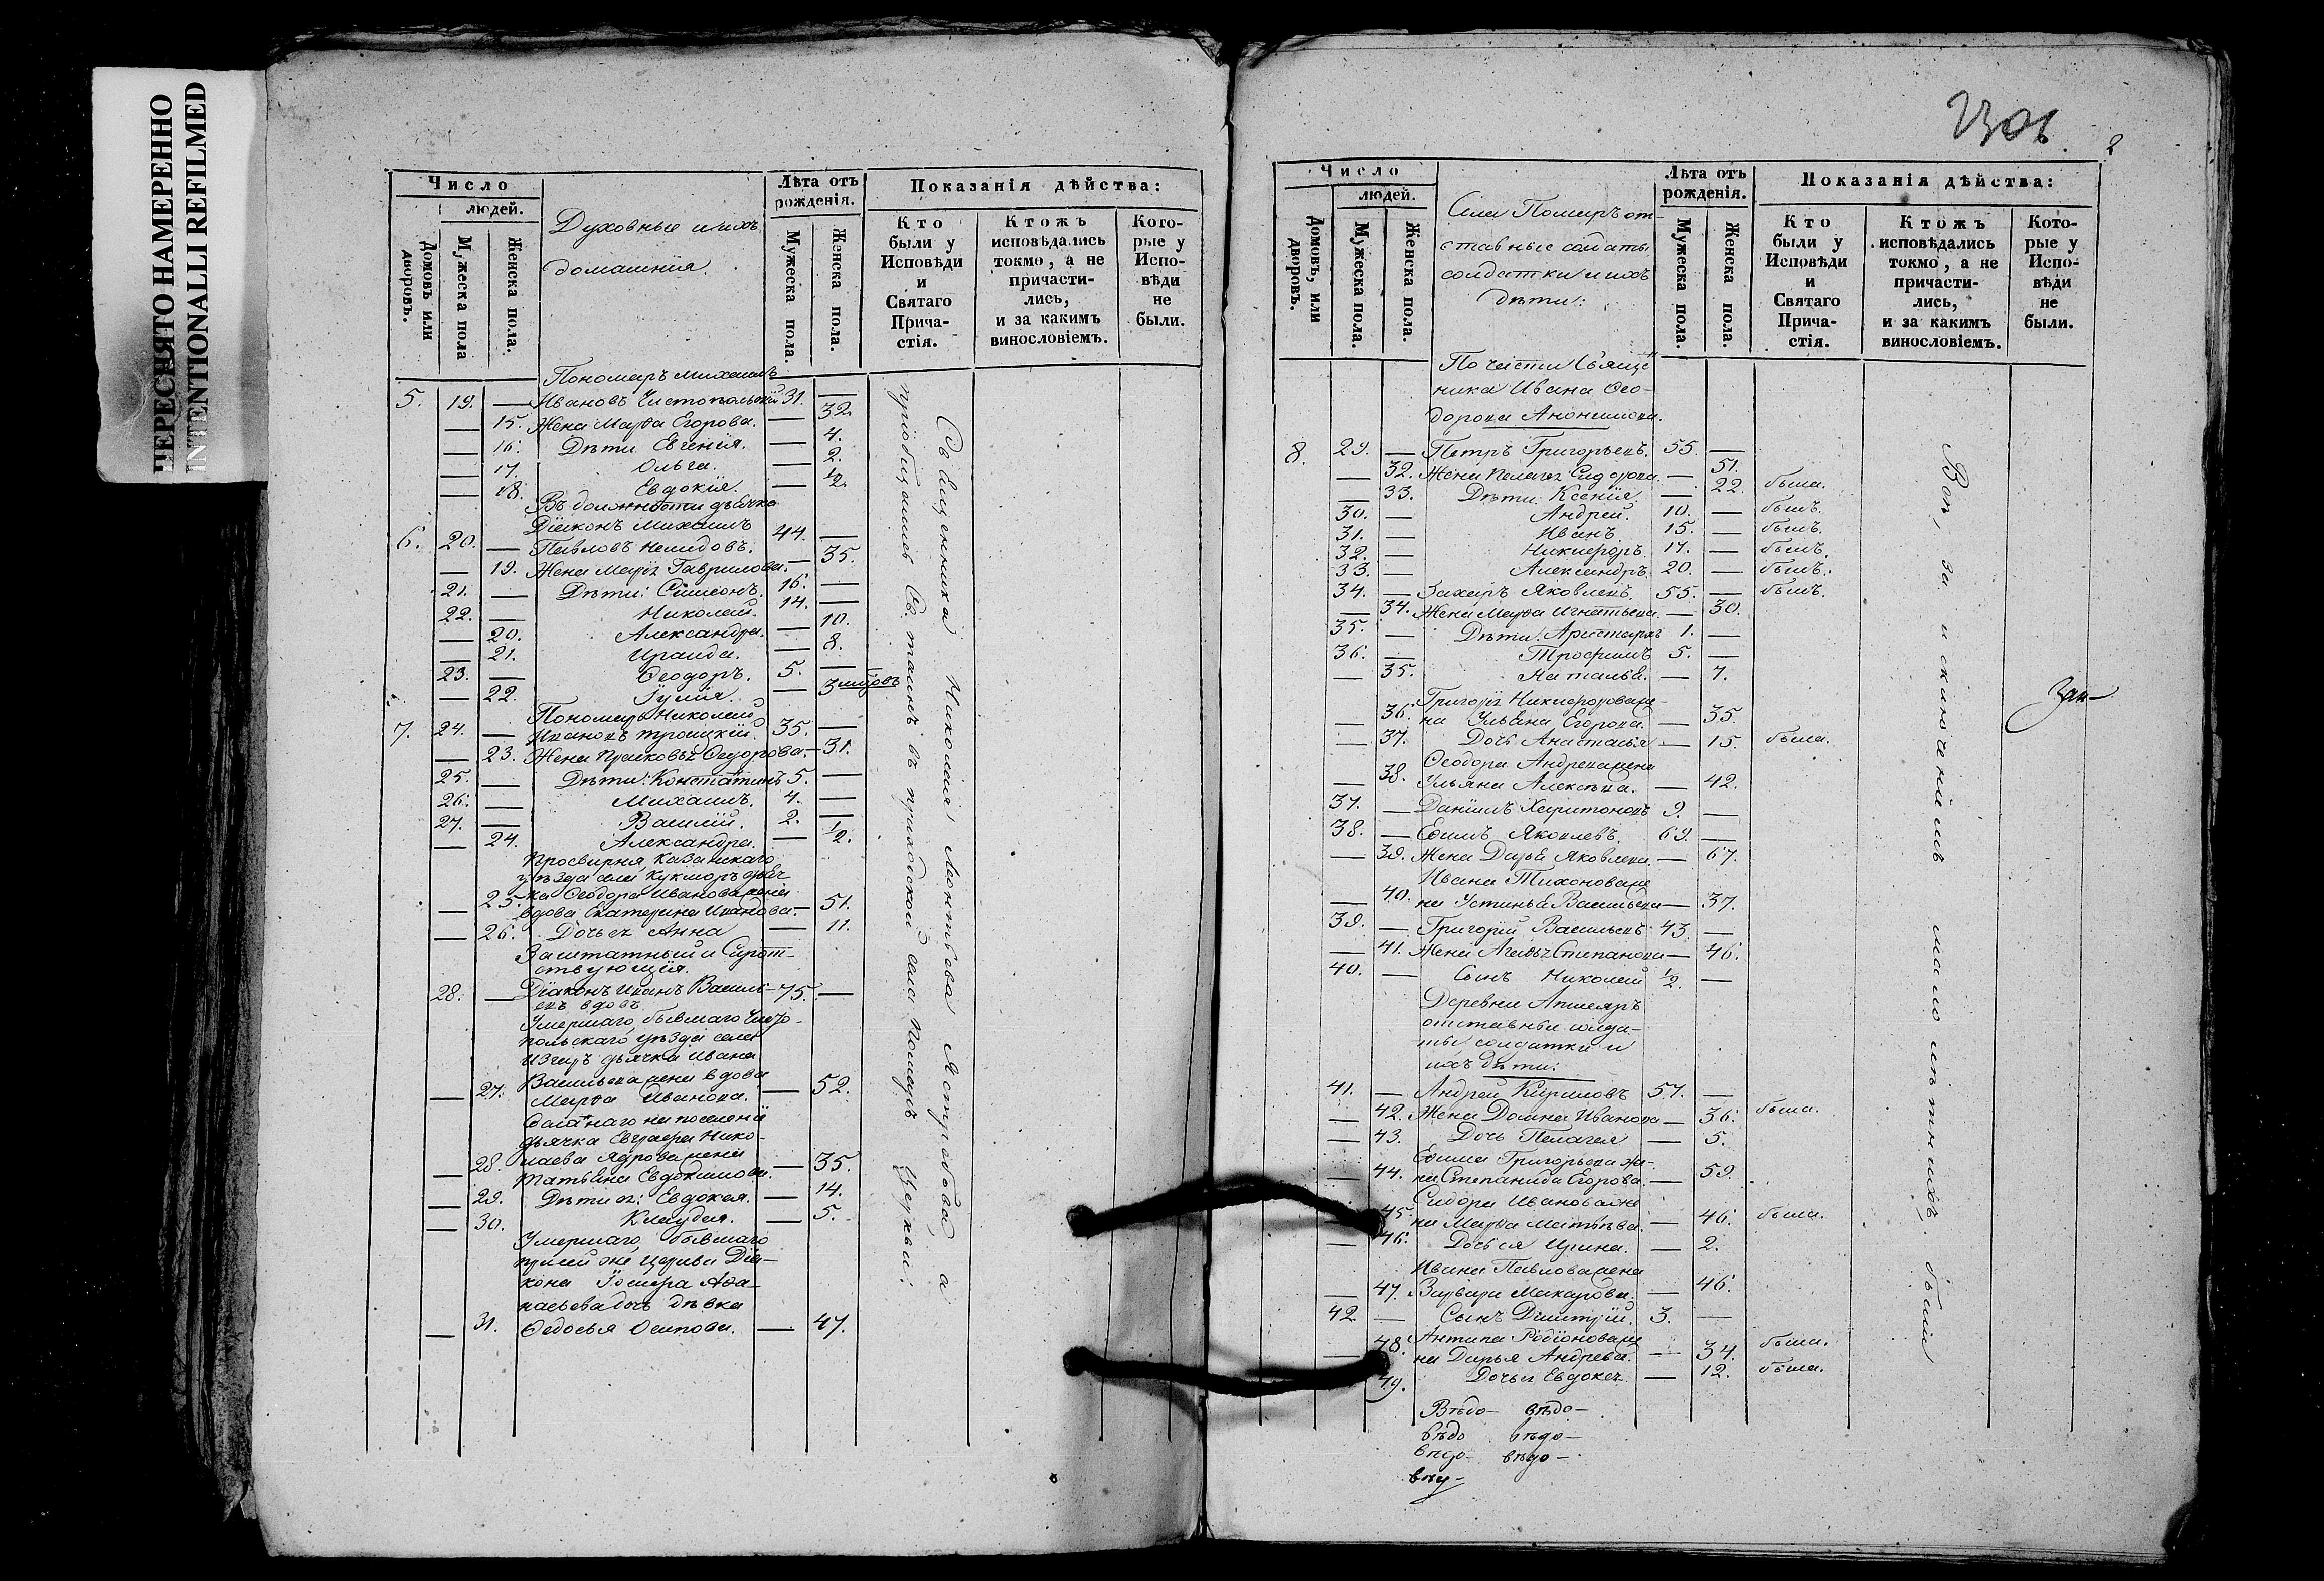 ПЕРЕСНЯТО НАМЕРЕННО
INTENTIONALLI REFILMED
Число
людей.
Домовъ или дворовъ.
Мужеска пола
Женска пола.
Духовные и ихъ
домашнія.
Лѣта отъ рожденія.
Мужеска пола.
Женска пола.
Показанія дѣйства:
Кто были у Исповѣди и Святаго Причастія.
Ктожъ исповѣдались токмо, а не причастились, и за какимъ винословіемъ.
Кого-рые у Исповѣди не были.
Пономаръ Михаилъ
5. 19. — Ивановъ Чистопольскій 31. —
— 15. Жена Марѳа Егорова. — 32.
— 16. Дѣти Евгенія. — 4.
— 17. Ольга. — 2.
— 18. Евдокія. — ½.
Въ должности дьячка
Діаконъ Михаилъ
6. 20. — Павловъ 44. —
— 19. Жена Гаврилова. — 35.
21. — Дѣти: Симеонъ. 16. —
22. — Николай. 14. —
— 20. Александра. — 10.
— 21. Ираида. — 8.
23. — Ѳеодоръ. 5. —
— 22. Іулія. — 3
Пономарь Николай
7. 24. — Ивановъ Троицкій. 35. —
— 23. Жена Ѳедорова. — 31.
25. — Дѣти: Констатинъ 5. —
26. — Михаилъ. 4. —
27. — Василій. 2. —
— 24. Александра. — ½.
Просвирня, Казанскаго
уѣзда села Кукморъ
ка Ѳеодора Иванова жена
— 25. вдова Екатерина Иванова. — 51.
— 26. Дочь ея Анна — 11.
Заштатный и Сирот-
ствующія.
28. — Діаконъ Иванъ Василь- 75. —
евъ вдовъ
Умершаго, бывшаго Чисто-
польскаго уѣзда села
дьячка Ивана
Васильева жена вдова
— 27. Марѳа Иванова. — 52.
на поселеніе
дьячка Евграфа Нико-
лаева жена
— 28. Татьяна Евдокимова. — 35.
— 29. Дѣти ея: Евдокея. — 14.
— 30. Клавдея. — 5.
Умершаго, бывшаго
при сей же церкви Діа-
кона Аѳа-
насьева дочь дѣвка
— 31. Ѳедосья Осипова. — 47.
Священника Николая Леонтьева Ястребова а
пріобщались Св. таинъ въ приходской села Помаръ Церкви.
230
2
Число
людей.
Домовъ, или дворовъ.
Мужеска пола.
Женска пола.
Села Помаръ от-
ставные солдаты
солдатки и ихъ
дѣти:
Лѣта отъ рожденія.
Мужеска пола.
Женска пола.
Показанія дѣйства:
Кто были у Исповѣди и Святаго Причастія.
Ктожъ исповѣдались токмо, а не причастились, и за какимъ винословіемъ.
Кото-рые у Исповѣди не были.
По части Свяще
ника Ивана Ѳео-
дорова
8. 29. — Петръ Григорьевъ. 55. —
— 32. Жена Пелагея Сидорова. — 51.
— 33. Дѣти: Ксенія — 22. была.
30. — Андрей. 10. — былъ.
31. — Иванъ. 15. — былъ.
32. — Никифоръ. 17. — былъ.
33. — Александръ. 20. — былъ.
34. — Захаръ Яковлевъ. 55. — былъ.
— 34. Жена Марѳа Игнатьева. — 30.
35. — Дѣти: Аристархъ 1. —
36. — Трофимъ 5. —
— 35. Наталья. — 7.
Григорія Никифорова же-
— 36. на Ульяна Егорова. — 35.
— 37. Дочь Анастасія — 15. была.
Ѳеодора Андреева жена
— 38. Ульяна Алексѣева. — 42.
37. — Даніилъ Харитоновъ 9. —
38. — Ефимъ Яковлевъ. 69. —
— 39. Жена Дарья Яковлева. — 67.
Ивана Тихонова же
— 40. на Устинья Васильева — 37.
39. — Григорій Васильевъ 43. —
— 41. Жена Степанова — 46.
40. — Сынъ Николай ½. —
Деревни
отставные солда-
ты солдатки и
ихъ дѣти:
41. — Андрей Кириловъ 57. —
— 42. Жена Домна Иванова — 36. была.
— 43. Дочь Пелагея — 5.
Ефима Григорьева же-
— 44. на Степанида Егорова. — 59.
Сидора Иванова же
45. на Марѳа Матвѣева. — 46. была.
— 46. Дочь ея Ирина. — 2.
Ивана Павлова жена
— 47. Варвара Макарова. — 46.
42 — Сынъ Димитрій. 3. —
Антипа Родіонова же
— 48. на Дарья Андреева. — 34. была.
49. Дочь ея Евдокея. — 12. была.
Вѣдо- вѣдо-
вѣдо вѣдо-
вѣдо- вѣдо-
вѣд-
Всѣ, за исключеніемъ малолѣтнихъ, были